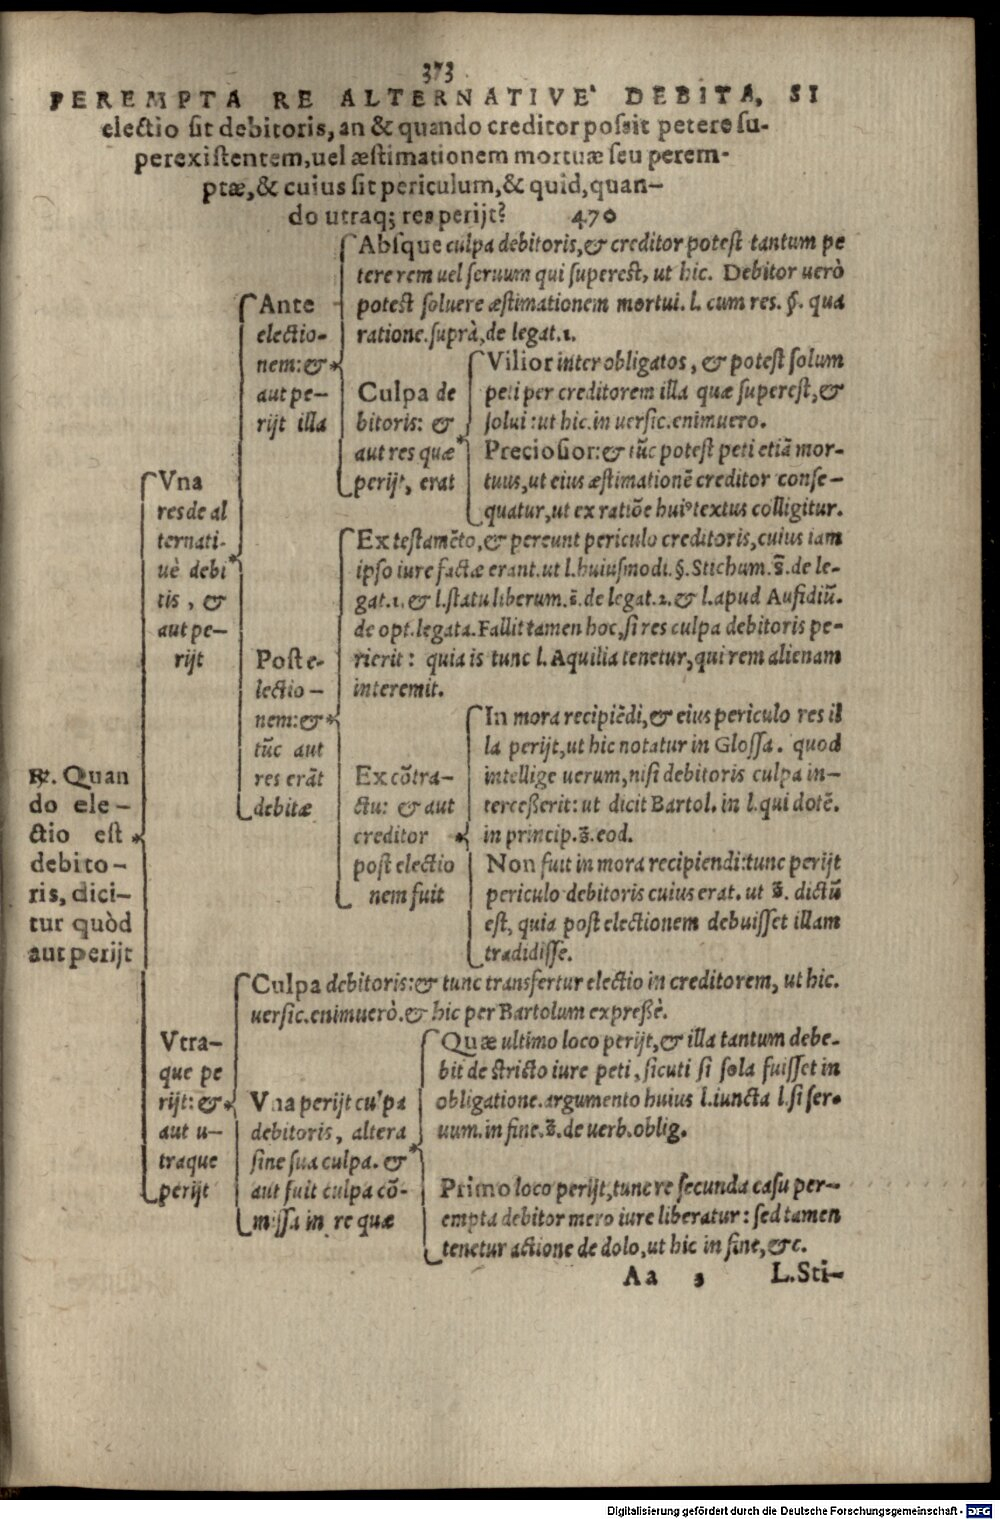 373
PEREMPTA RE ALTERNATIVE' DEBITA, SI
electio sit debitoris, an & quando creditor possit petere su-
perexistentem, uel æstimationem mortuæ seu perem-
ptæ, & cuius sit periculum, & quid, quan-
do utraq; res perijt? 470
℞. Quan
do ele-
ctio est
debito-
ris, dici-
tur quòd
aut perijt
Vna
res de al
ternati-
uè debi
tis, &
aut pe-
rijt
Ante
electio-
nem: &
aut pe-
rijt illa
Absque culpa debitoris, & creditor potest tantum pe
tere rem uel seruum qui superest, ut hic. Debitor uerò
potest soluere æstimationem mortui. l. cum res. §. qua
ratione. suprà, de legat. 1.
Culpa de
bitoris: &
aut res quæ
perijt, erat
Vilior inter obligatos, & potest solum
peti per creditorem illa quæ superest, &
solui: ut hic. in uersic. enimuero.
Preciosior: & tũc potest peti etiã mor-
tuus, ut eius æstimationẽ creditor conse-
quatur, ut ex ratiõe huiꝰ textus colligitur.
Post e-
lectio-
nem: &
tũc aut
res erãt
debitæ
Ex testamẽto, & pereunt periculo creditoris, cuius iam
ipso iure factæ erant. ut l. huiusmodi. §. Stichum. s̃. de le-
gat. 1. & l. statu liberum. s̃. de legat. 2. & l. apud Aufidiũ.
de opt. legata. Fallit tamen hoc, si res culpa debitoris pe-
rierit: quia is tunc l. Aquilia tenetur, qui rem alienam
interemit.
Ex cõtra-
ctu: & aut
creditor
post electio
nem fuit
In mora recipiẽdi, & eius periculo res il
la perijt, ut hic notatur in Glossa. quod
intellige uerum, nisi debitoris culpa in-
tercesserit: ut dicit Bartol. in l. qui dotẽ.
in princip. ʒ̃. eod.
Non fuit in mora recipiendi: tunc perijt
periculo debitoris cuius erat. ut ʒ̃. dictũ
est, quia post electionem debuisset illam
tradidisse.
Vtra-
que pe
rijt: &
aut u-
traque
perijt
Culpa debitoris: & tunc transfertur electio in creditorem, ut hic.
uersic. enimuerò. & hic per Bartolum expressè.
Vna perijt culpa
debitoris, altera
sine sua culpa. &
aut fuit culpa cõ-
missa in re quæ
Quæ ultimo loco perijt, & illa tantum debe-
bit de stricto iure peti, sicuti si sola fuisset in
obligatione. argumento huius l. iuncta l. si ser-
uum. in fine. ʒ̃. de uerb. oblig.
Primo loco perijt, tunc re secunda casu per-
empta debitor mero iure liberatur: sed tamen
tenetur actione de dolo, ut hic in fine, &c.
Aa 3 L. Sti-
Digitalisierung gefördert durch die Deutsche Forschungsgemeinschaft - DFG